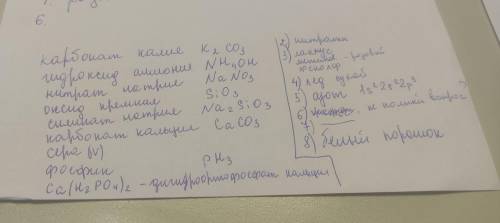 6.
карбонат калие K2CO3
гидроксид аммоние NH4OH
нитрат натрие NaNO3
оксид кремние SiO3
силикат натрие Na2SiO3
карбонат кальцие CaCO3
сера (IV)
фосфин PH3
Ca(H2PO4)2 - дигидроортофосфат кальция
2) нитраты
3) лакмус
- розовый
4) лёд сухой
5) азот 1s2 2s2 2p3
6) не поняла вопрос ?
7)
8) белый порошок